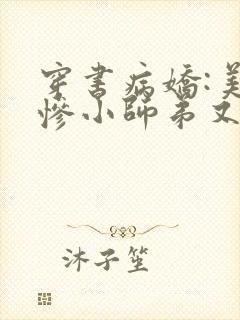 穿书病娇:美
惨小师弟又
沐子笙